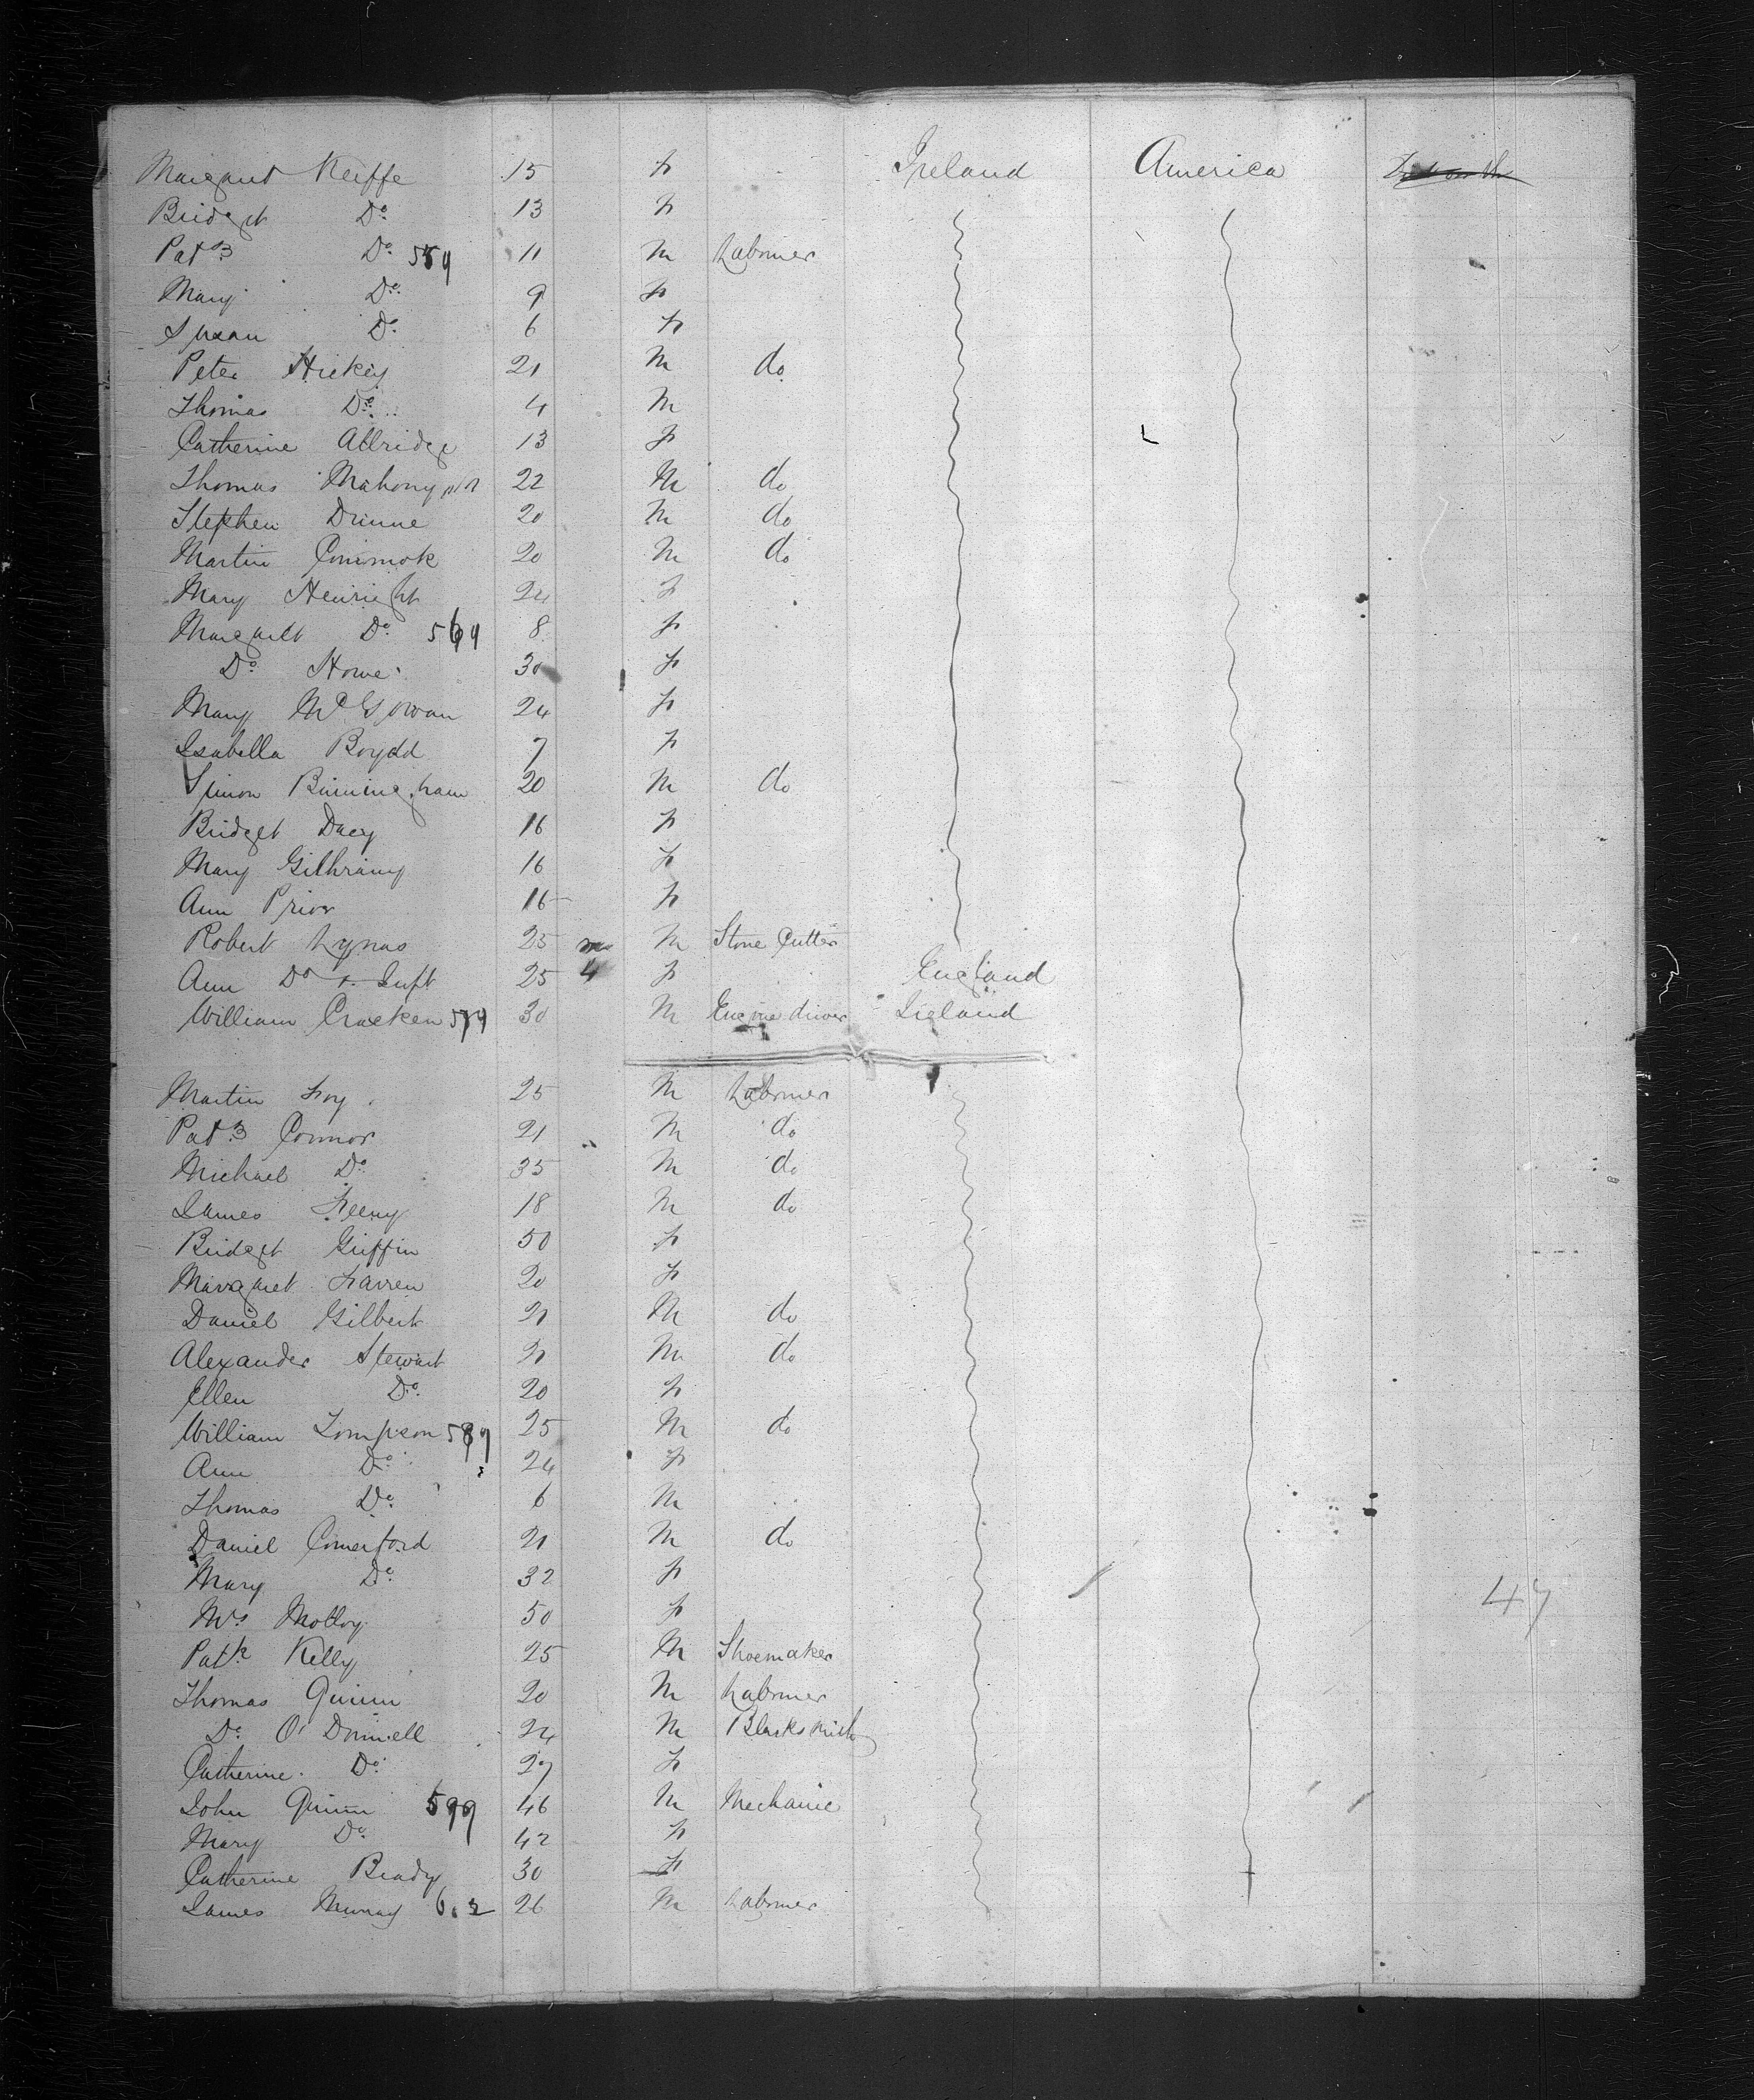 Margaret Keiffe 15 F Ireland America
Bridget Do 13 F
Patk Do 559 11 M Labourer
Mary Do 9 F
Susan Do 6 F
Peter Hickey 21 M do
Thomas Do 4 M
Catherine Allridge 13 F
Thomas Mahony 22 M do
Stephen Dinne 20 M do
Martin Commok 20 M do
Mary Henright 24 F
Margaret Do 569 8 F
Do Howe 30 F
Mary McGowan 24 F
Isabella Boydd 7 F
Simon Birmingham 20 M do
Bridget Dacy 16 F
Mary Gilhramy 16 F
Ann Prior 16 F
Robert Lynas 25 M Stone Cutter
Ann Do & Inft 25 4 F England
William Cracken 579 30 M Engine driver Ireland
Martin Foy 25 M Labourer
Patk Connor 21 M do
Michael Do 35 M do
James Feeny 18 M do
Bridget Griffin 50 F
Margaret Farren 20 F
Daniel Gilbert 21 M do
Alexander Stewart 21 M do
Ellen Do 20 F
William Tompson 589 25 M do
Ann Do 24 F
Thomas Do 6 M
Daniel Comerford 21 M do
Mary Do 32 F
Mrs Molloy 50 F 47
Patk Kelly 25 M Shoemaker
Thomas Quinn 20 M Labourer
Do O'Donnell 24 M Blacksmith
Catherine Do 27 F
John Quinn 599 46 M Mechanic
Mary Do 42 F
Catherine Brady 30 F
James Murray 602 26 M Labourer